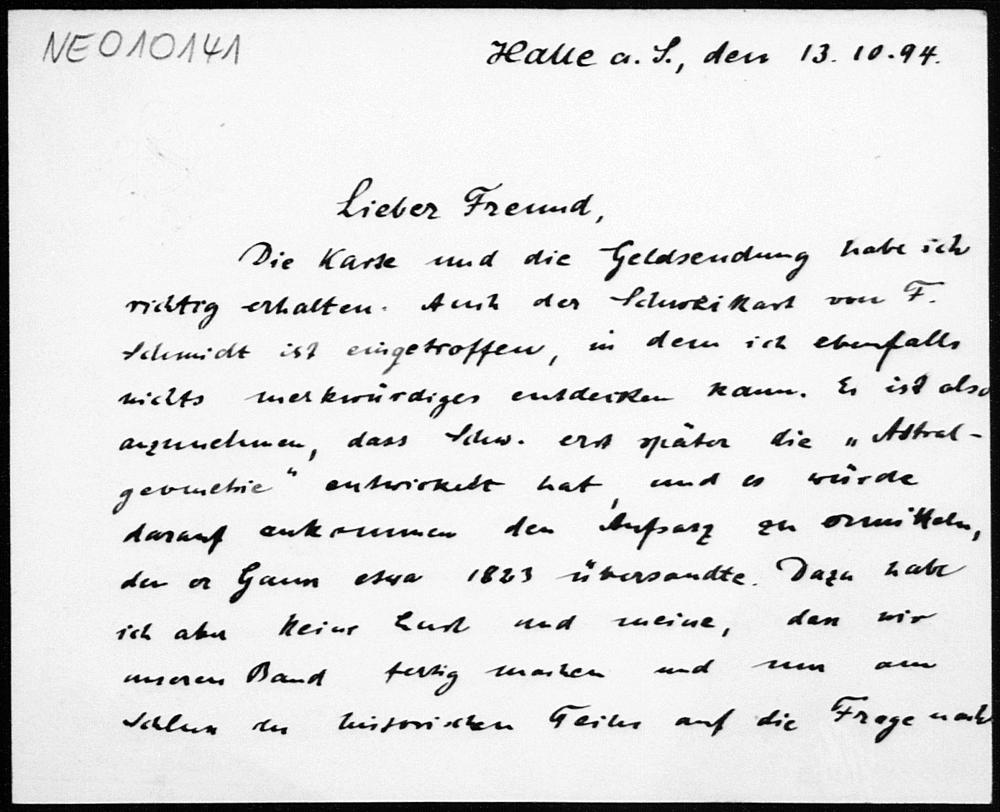 NE010141
Halle a. S., den 13. 10. 94.
Lieber Freund,
Die Karte und die Geldsendung habe ich
richtig erhalten. Auch der Schweikart von F.
Schmidt ist eingetroffen, in dem ich ebenfalls
nichts merkwürdiges entdecken kann. Es ist also
anzunehmen, dass Schw. erst später die „Astral-
geometrie“ entwickelt hat, und es würde
darauf ankommen den Aufsatz zu ermitteln,
den er Gauss etwa 1823 übersandte. Dazu habe
ich aber keine Lust und meine, dass wir
unseren Band fertig machen und nur am
Schluss des historischen Teiles auf die Frage nach